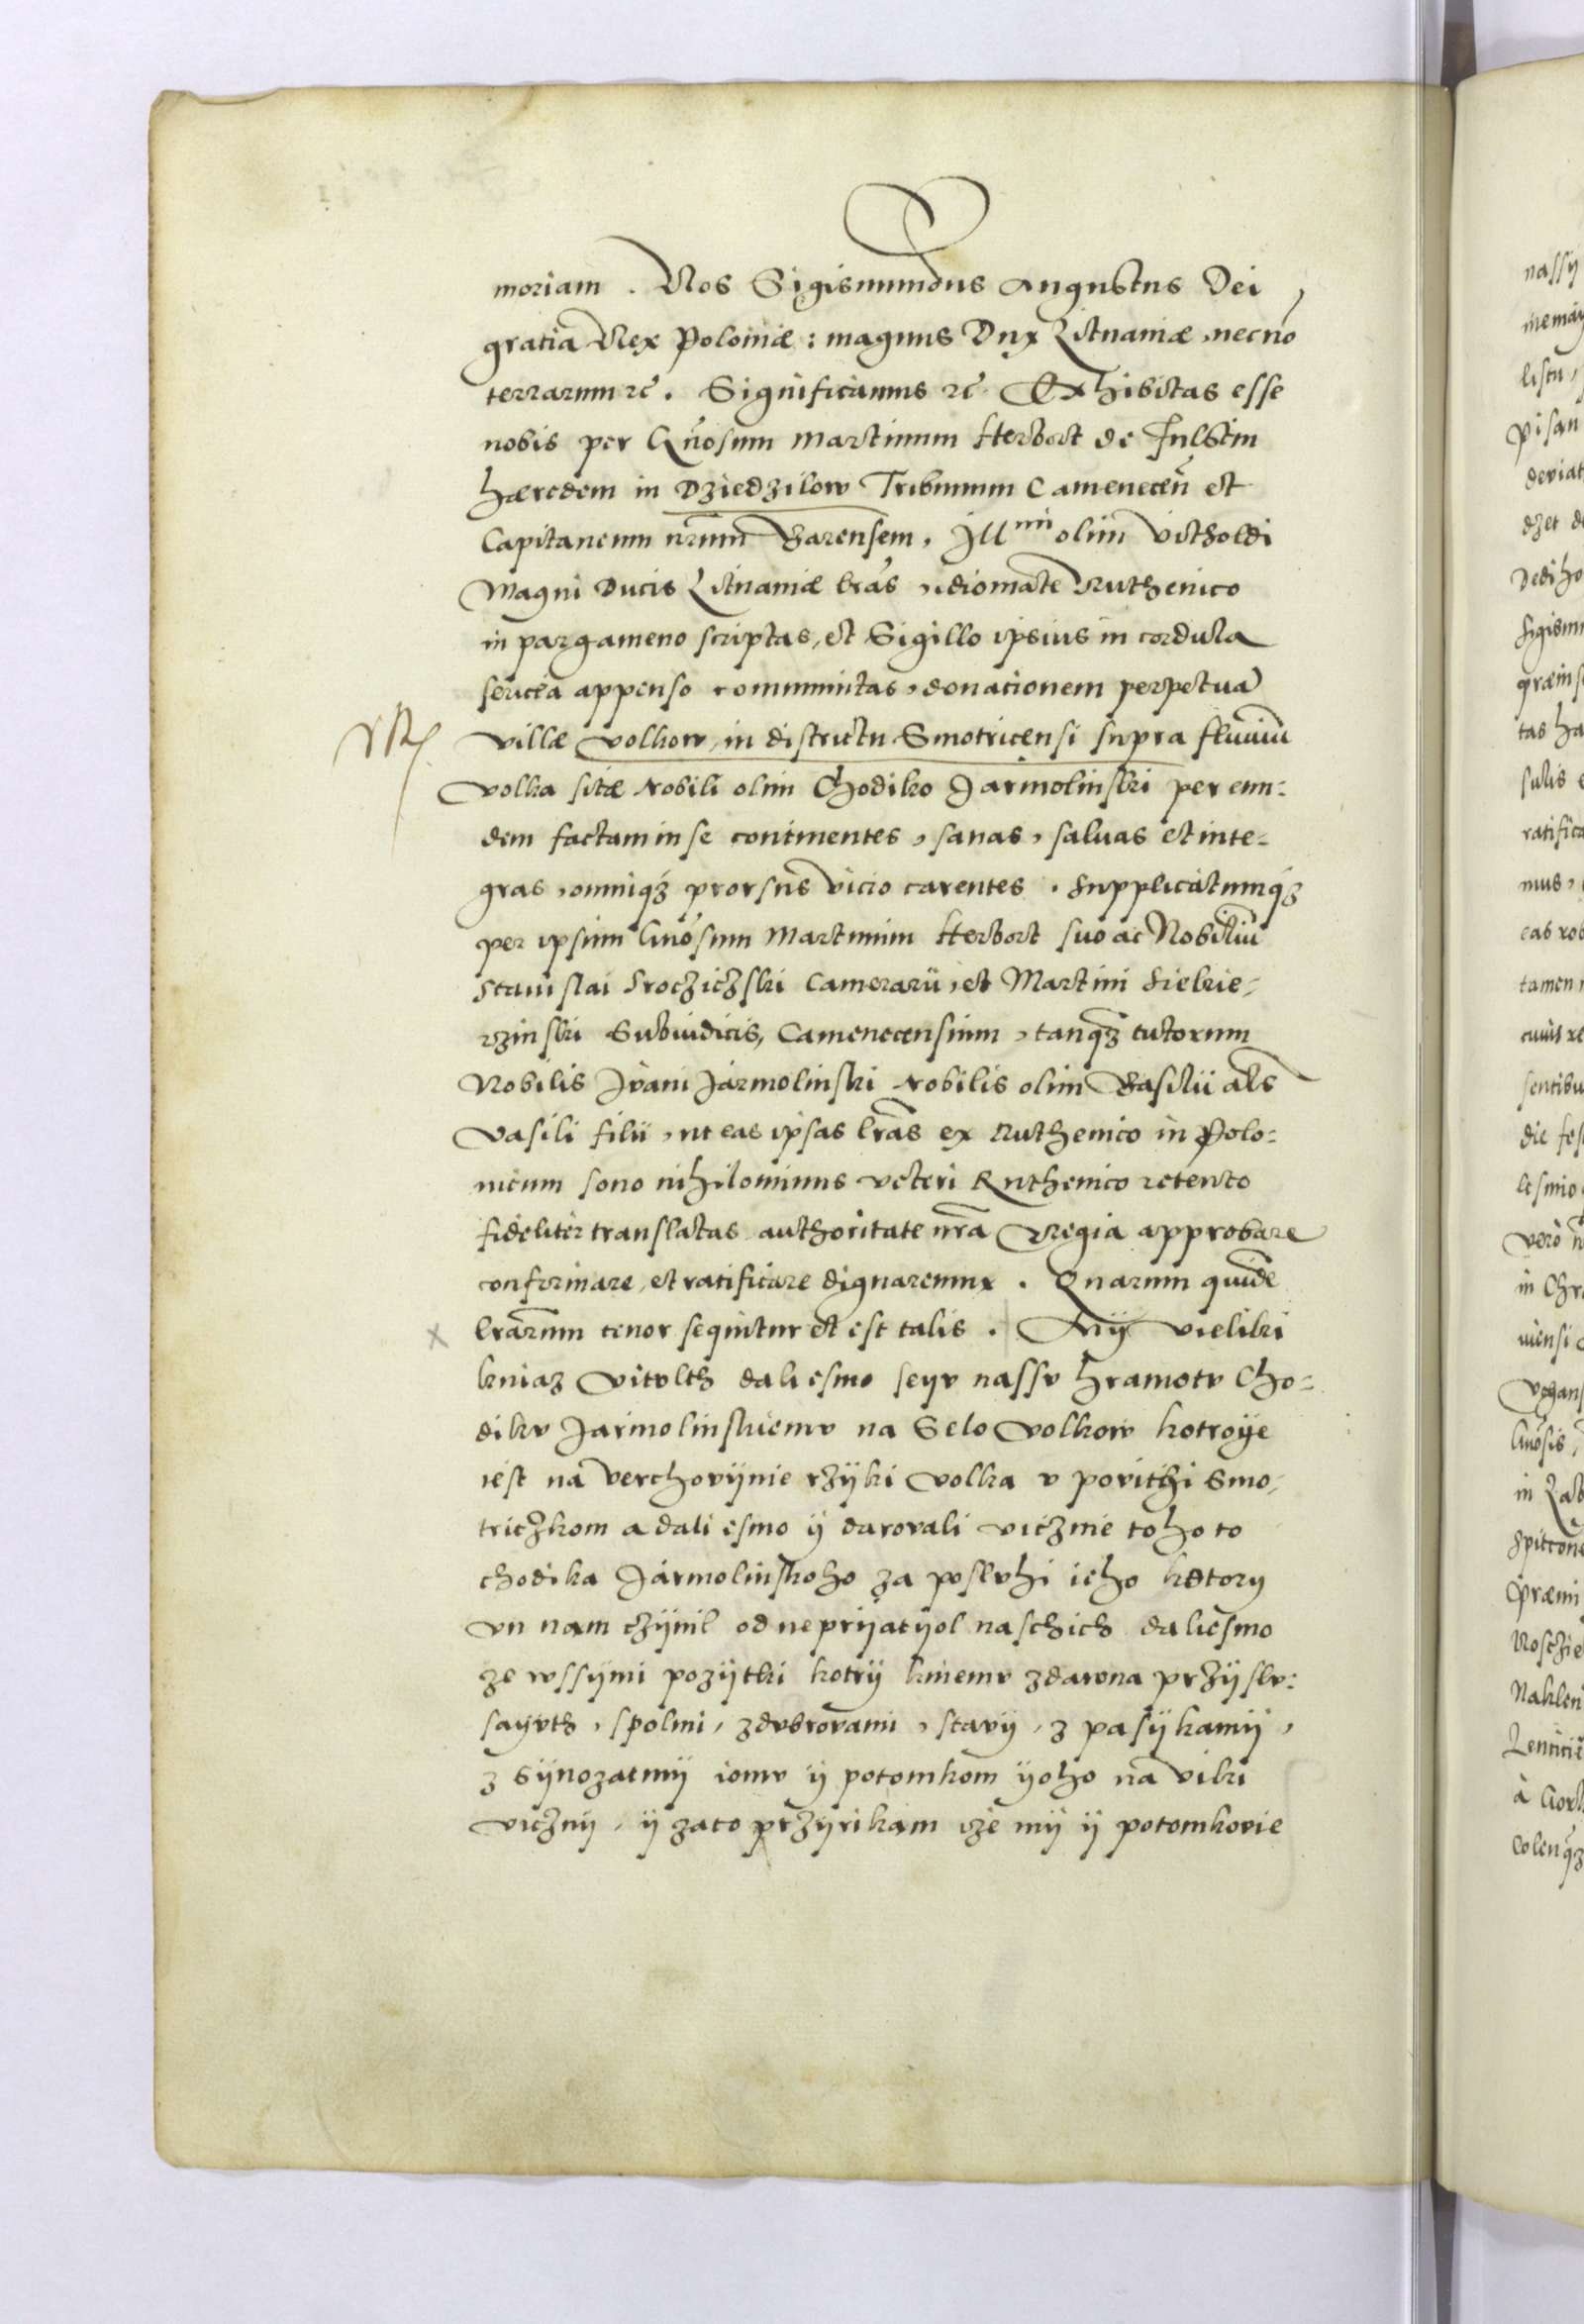 moriam . Nos Sigismundus Augustus Dei
gratia Rex Poloniæ : magnus Dux Lituaniæ, necnō
terrarum &c̄. Significamus &c̄ Exhibitas esse
nobis per Gn̄osum Martinum Herbort de Fulstin
hæredem in Dziedzilow Tribunum Camenecen̄ et
Capitaneum nr̄um Barensem, Ill^mi olim Vitholdi
Magni Ducis Lituaniæ lr̄as, idiomate Ruthenico
in pargameno scriptas, et Sigillo ipsius in cordula
sericea appenso communitas, donationem perpetuā
villæ Volkow, in districtu Smotricensi supra fluuiū
Volka sitæ Nobili olim Chodiko Jarmolinski per eun=
dem factam in se continentes, sanas, saluas et inte=
gras, omniq́z prorsus vicio carentes. Supplicatumq́z
per ipsum Gn̄osum Martinum Herbort suo ac Nobiliū
Stanislai Sroczichski Camerarii, et Martini Siebrie=
rzinski Subiudicis, Camenecensium, tanq̄z tutorum
Nobilis Ivani Jarmolinski Nobilis olim Basilii al̄s
Vasili filii, ut eas ipsas lr̄as ex Ruthenico in Polo=
nicum sono nihilominus veteri Ruthenico retento
fideliter translatas authoritate nr̄a Regia approbare
confirmare, et ratificare dignaremur. Quarum quidē
lr̄arum tenor sequitur et est talis. My vieliki
kniaz Vitolth dali esmo seyv nassv hramotv Cho=
dikv Jarmolinskiemv na Selo Volkow kotroye
iest na verchovijnie rzijki Volka v povithi Smo=
triczkom a dali esmo ij darovali viczme toho to
chodika Jarmolinskoho za poslvhi ieho kdtory
vn nam czijnil od neprijatijol naschich daliesmo
ze wssijmi pozijtki kotrij kniemv zdawna przijslv=
sayvth, spolmi, zdvbrovami, stavij, z pasijkamij,
z sijnozatmij iomv ij potomkom ijoho na viki
vicznij, ij zato przyrikam ize mij ij potomkovie